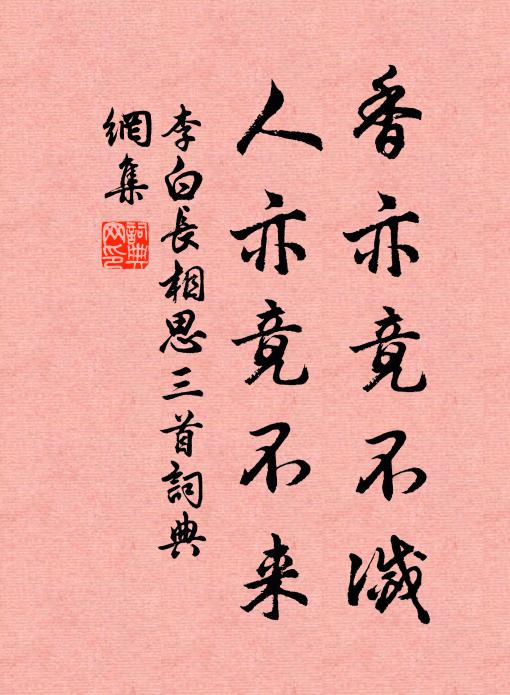 香亦竟不滅
人亦竟不来
李白長相思三首詞典
網集
詞典
网印